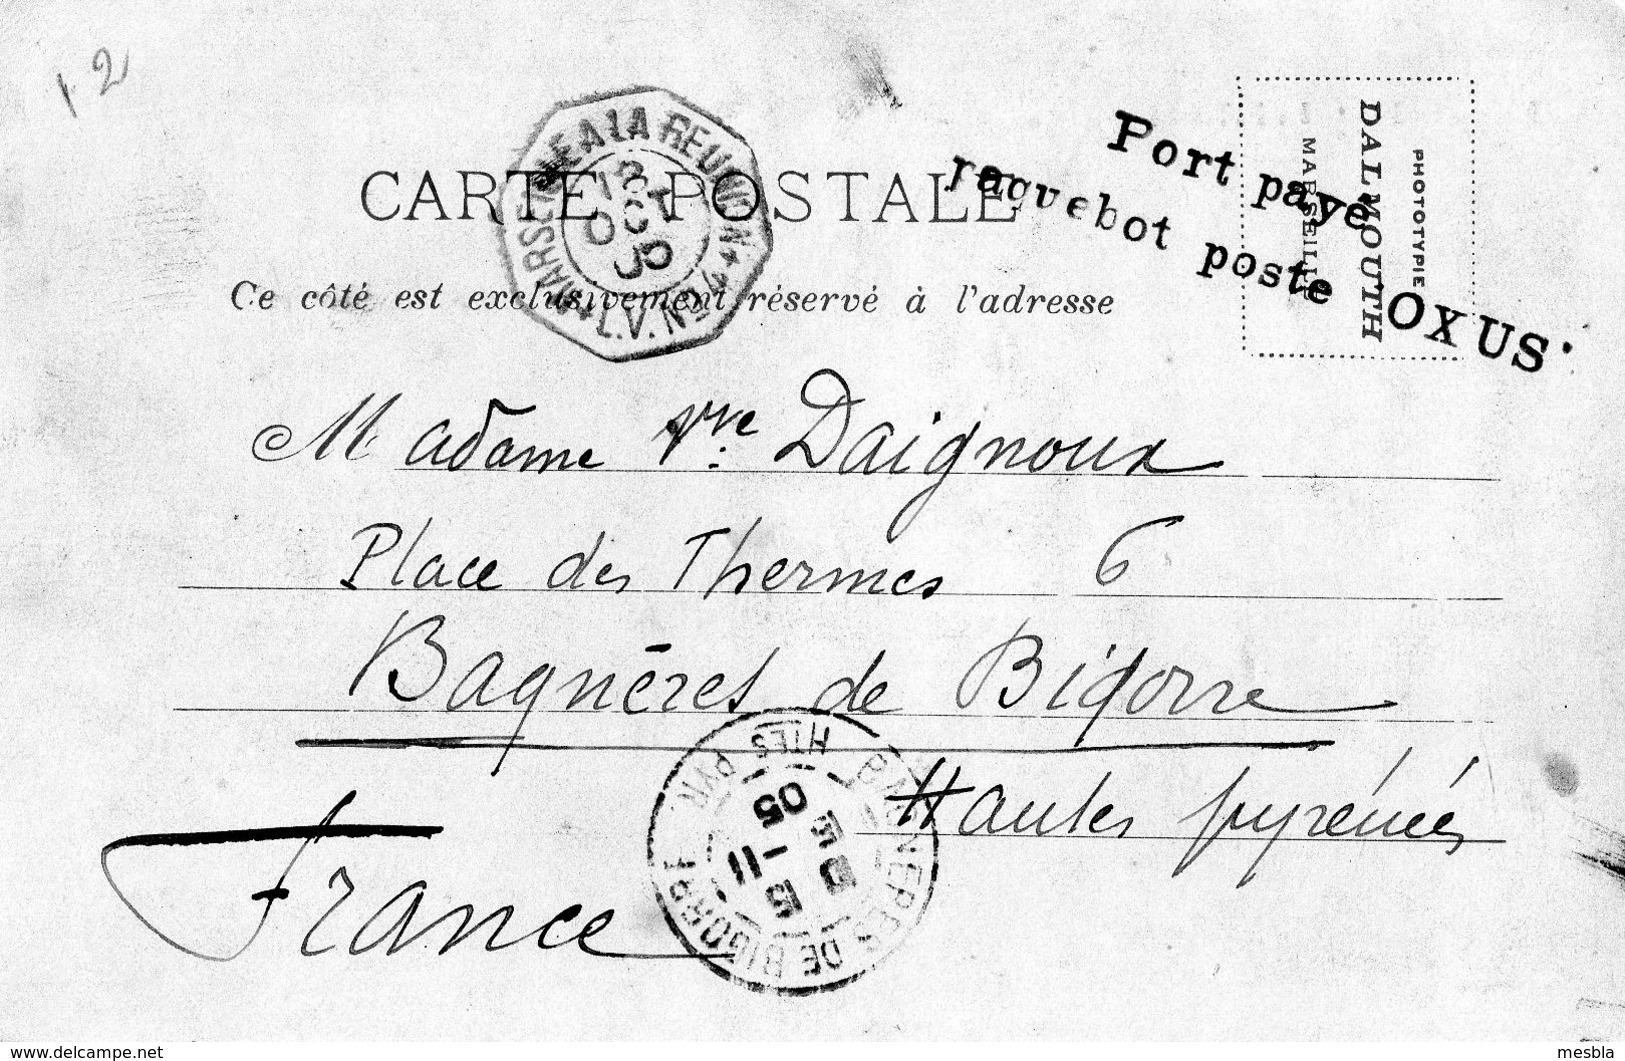 12
CARTE POSTALE
MARSEILLE A LA REUNION
L.V. No 4
Port payé
paquebot poste OXUS
PHOTOTYPIE
DALMOUTH
MARSEILLE
Ce côté est exclusivement réservé à l'adresse
Madame Vve Daignoux
Place des Thermes 6
Bagnères de Bigorre
Hautes pyrénées
France
BAGNERES DE BIGORRE
HTES PYR.
05
www.delcampe.net
mesbla